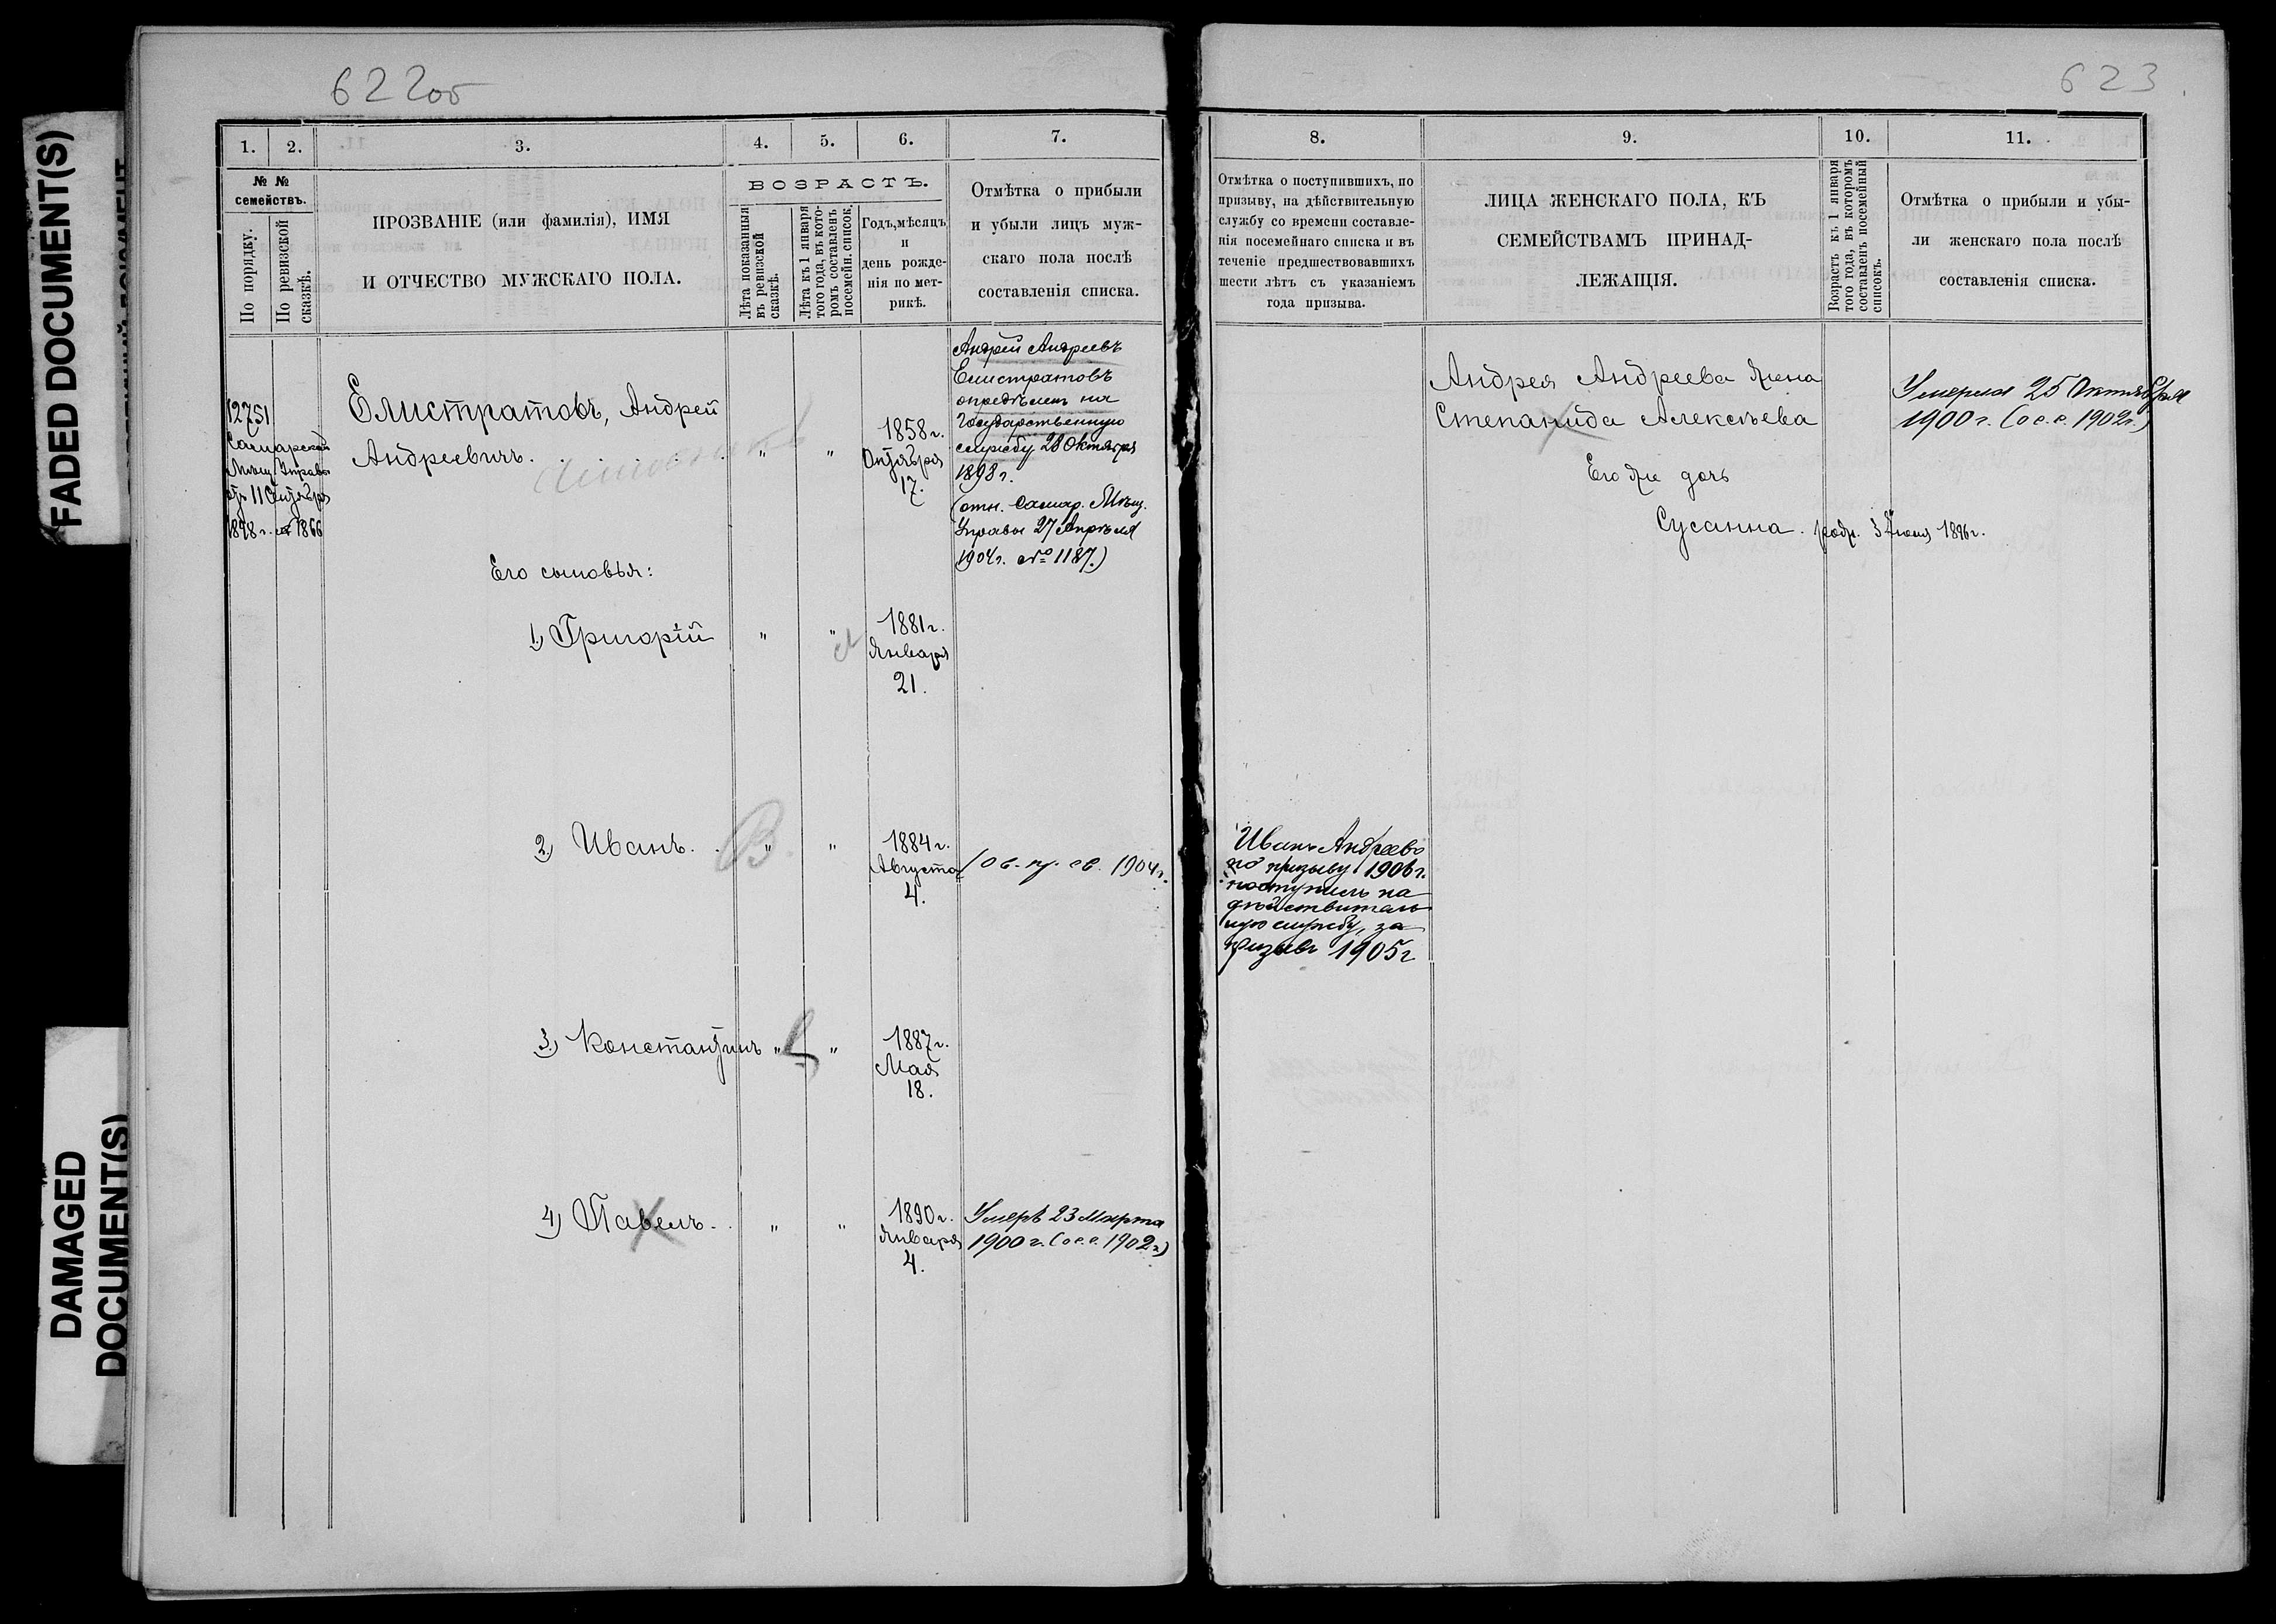 FADED DOCUMENT(S)
DAMAGED
DOCUMENT(S)
622об
1.
2.
3.
4.
5.
6.
7.
№ №
семействъ.
По порядку.
По ревизской
сказкѣ.
ПРОЗВАНІЕ (или фамилія), ИМЯ
И ОТЧЕСТВО МУЖСКАГО ПОЛА.
ВОЗРАСТЪ.
Лѣта показанныя
въ ревизской
сказкѣ.
Лѣта къ 1 января
того года, въ кото-
ромъ составленъ
посемейн. список.
Годъ, мѣсяцъ
и
день рожде-
нія по мет-
рикѣ.
Отмѣтка о прибыли
и убыли лицъ муж-
скаго пола послѣ
составленія списка.
12751
Самарской
Мѣщ. Управы
1878 г. 1866
Елистратовъ, Андрей
Андреевичъ.
" "
1858 г.
Октября
17.
Андрей Андреевъ
Елистратовъ
опредѣленъ на
Государственную
службу 28 Октября
1898 г.
(отн. Самар. Мѣщ.
Управы 27 Апрѣля
1904 г. № 1187.)
Его сыновья:
1) Григорій " "
1881 г.
Января
21.
2) Иванъ. В " "
1884 г.
Августа
4.
(о в. п. св. 1904 г.
3) Константинъ " "
1887 г.
Мая
18.
4) Павелъ. " "
1890 г.
Января
4.
Умеръ 23 Марта
1900 г. (о с. с. 1902 г.)
623
8.
9.
10.
11.
Отмѣтка о поступившихъ, по
призыву, на дѣйствительную
службу со времени составле-
нія посемейнаго списка и въ
теченіе предшествовавшихъ
шести лѣтъ съ указаніемъ
года призыва.
ЛИЦА ЖЕНСКАГО ПОЛА, КЪ
СЕМЕЙСТВАМЪ ПРИНАД-
ЛЕЖАЩІЯ.
Возрастъ къ 1 января
того года, въ которомъ
составленъ посемейный
списокъ.
Отмѣтка о прибыли и убы-
ли женскаго пола послѣ
составленія списка.
Андрея Андреева жена
Степанида Алексѣева
Умерла 25 Октября
1900 г. (о с. с. 1902 г.)
Его же дочь
Сусанна. род. 3 Іюня 1896 г.
Иванъ Андреевъ
по призыву 1906 г.
поступилъ на
дѣйствитель
ную службу, за
призывъ 1905 г